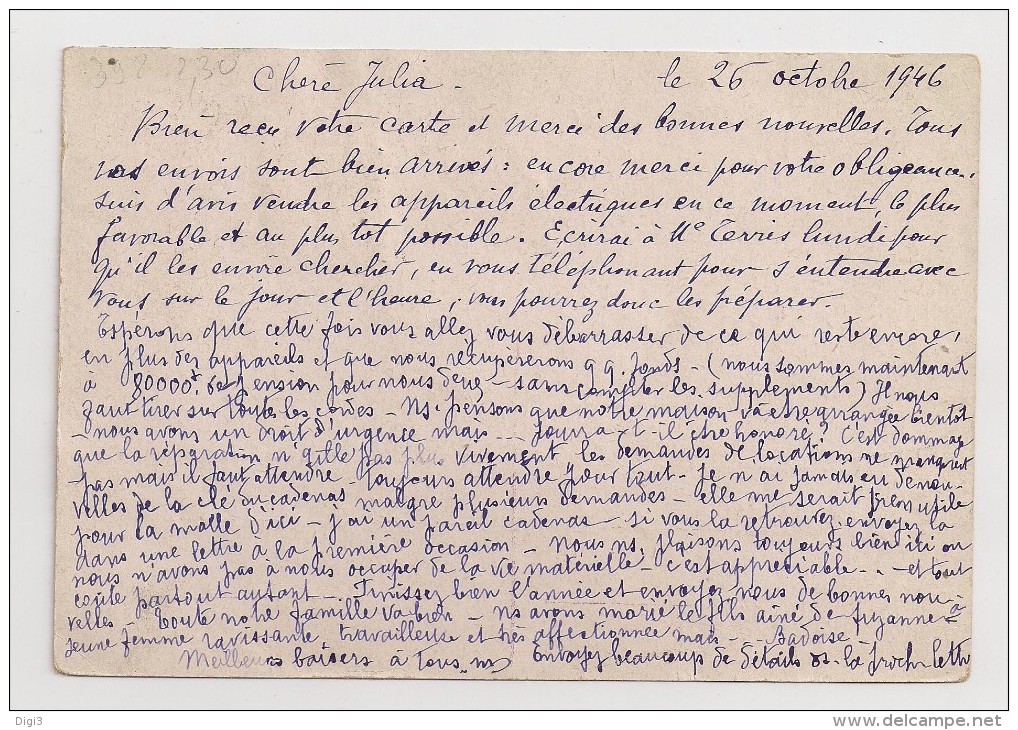 398 2,30
Chère Julia. le 26 octobre 1946
Bien reçu votre carte et merci des bonnes nouvelles. Tous
vos envois sont bien arrivés : encore merci pour votre obligeance.
suis d'avis vendre les appareils électriques en ce moment, le plus
favorable et au plus tot possible. Ecrirai à Me Terris lundi pour
qu'il les envoie chercher, en vous téléphonant pour s'entendre avec
vous sur le jour et l'heure, vous pourrez donc les préparer.
Espérons que cette fois vous allez vous débarrasser de ce qui reste encore,
en plus des appareils et que nous récupèrerons qq. fonds - (nous sommes maintenant
à 80000f de pension pour nous deux - sans compter les supplements) Il nous
faut tirer sur toutes les cordes - Ns. pensons que notre maison va être arrangée bientot
- nous avons un droit d'urgence mais... pourra-t-il être honoré? C'est dommage
que la réparation n'aille pas plus vivement les demandes de locations ne manquent
pas mais il faut attendre - toujours attendre pour tout - je n'ai jamais eu de nou-
velles de la clé du cadenas malgré plusieurs demandes - elle me serait bien utile
pour la malle d'ici - j'ai un pareil cadenas - si vous la retrouvez envoyez la
dans une lettre à la première occasion - nous ns. plaisons toujours bien ici ou
nous n'avons pas à nous occuper de la vie matérielle - c'est appreciable... et tout
coûte partout autant - Finissez bien l'année et envoyez nous de bonnes nou-
velles - Toute notre famille va bien - ns avons marié le fils ainé de Suzanne - à
jeune femme ravissante, travailleuse et très affectionnée mais -- Badoise!
Meilleurs baisers à tous Envoyez beaucoup de détails ds. la proch. lettre
Digi3
www.delcampe.net